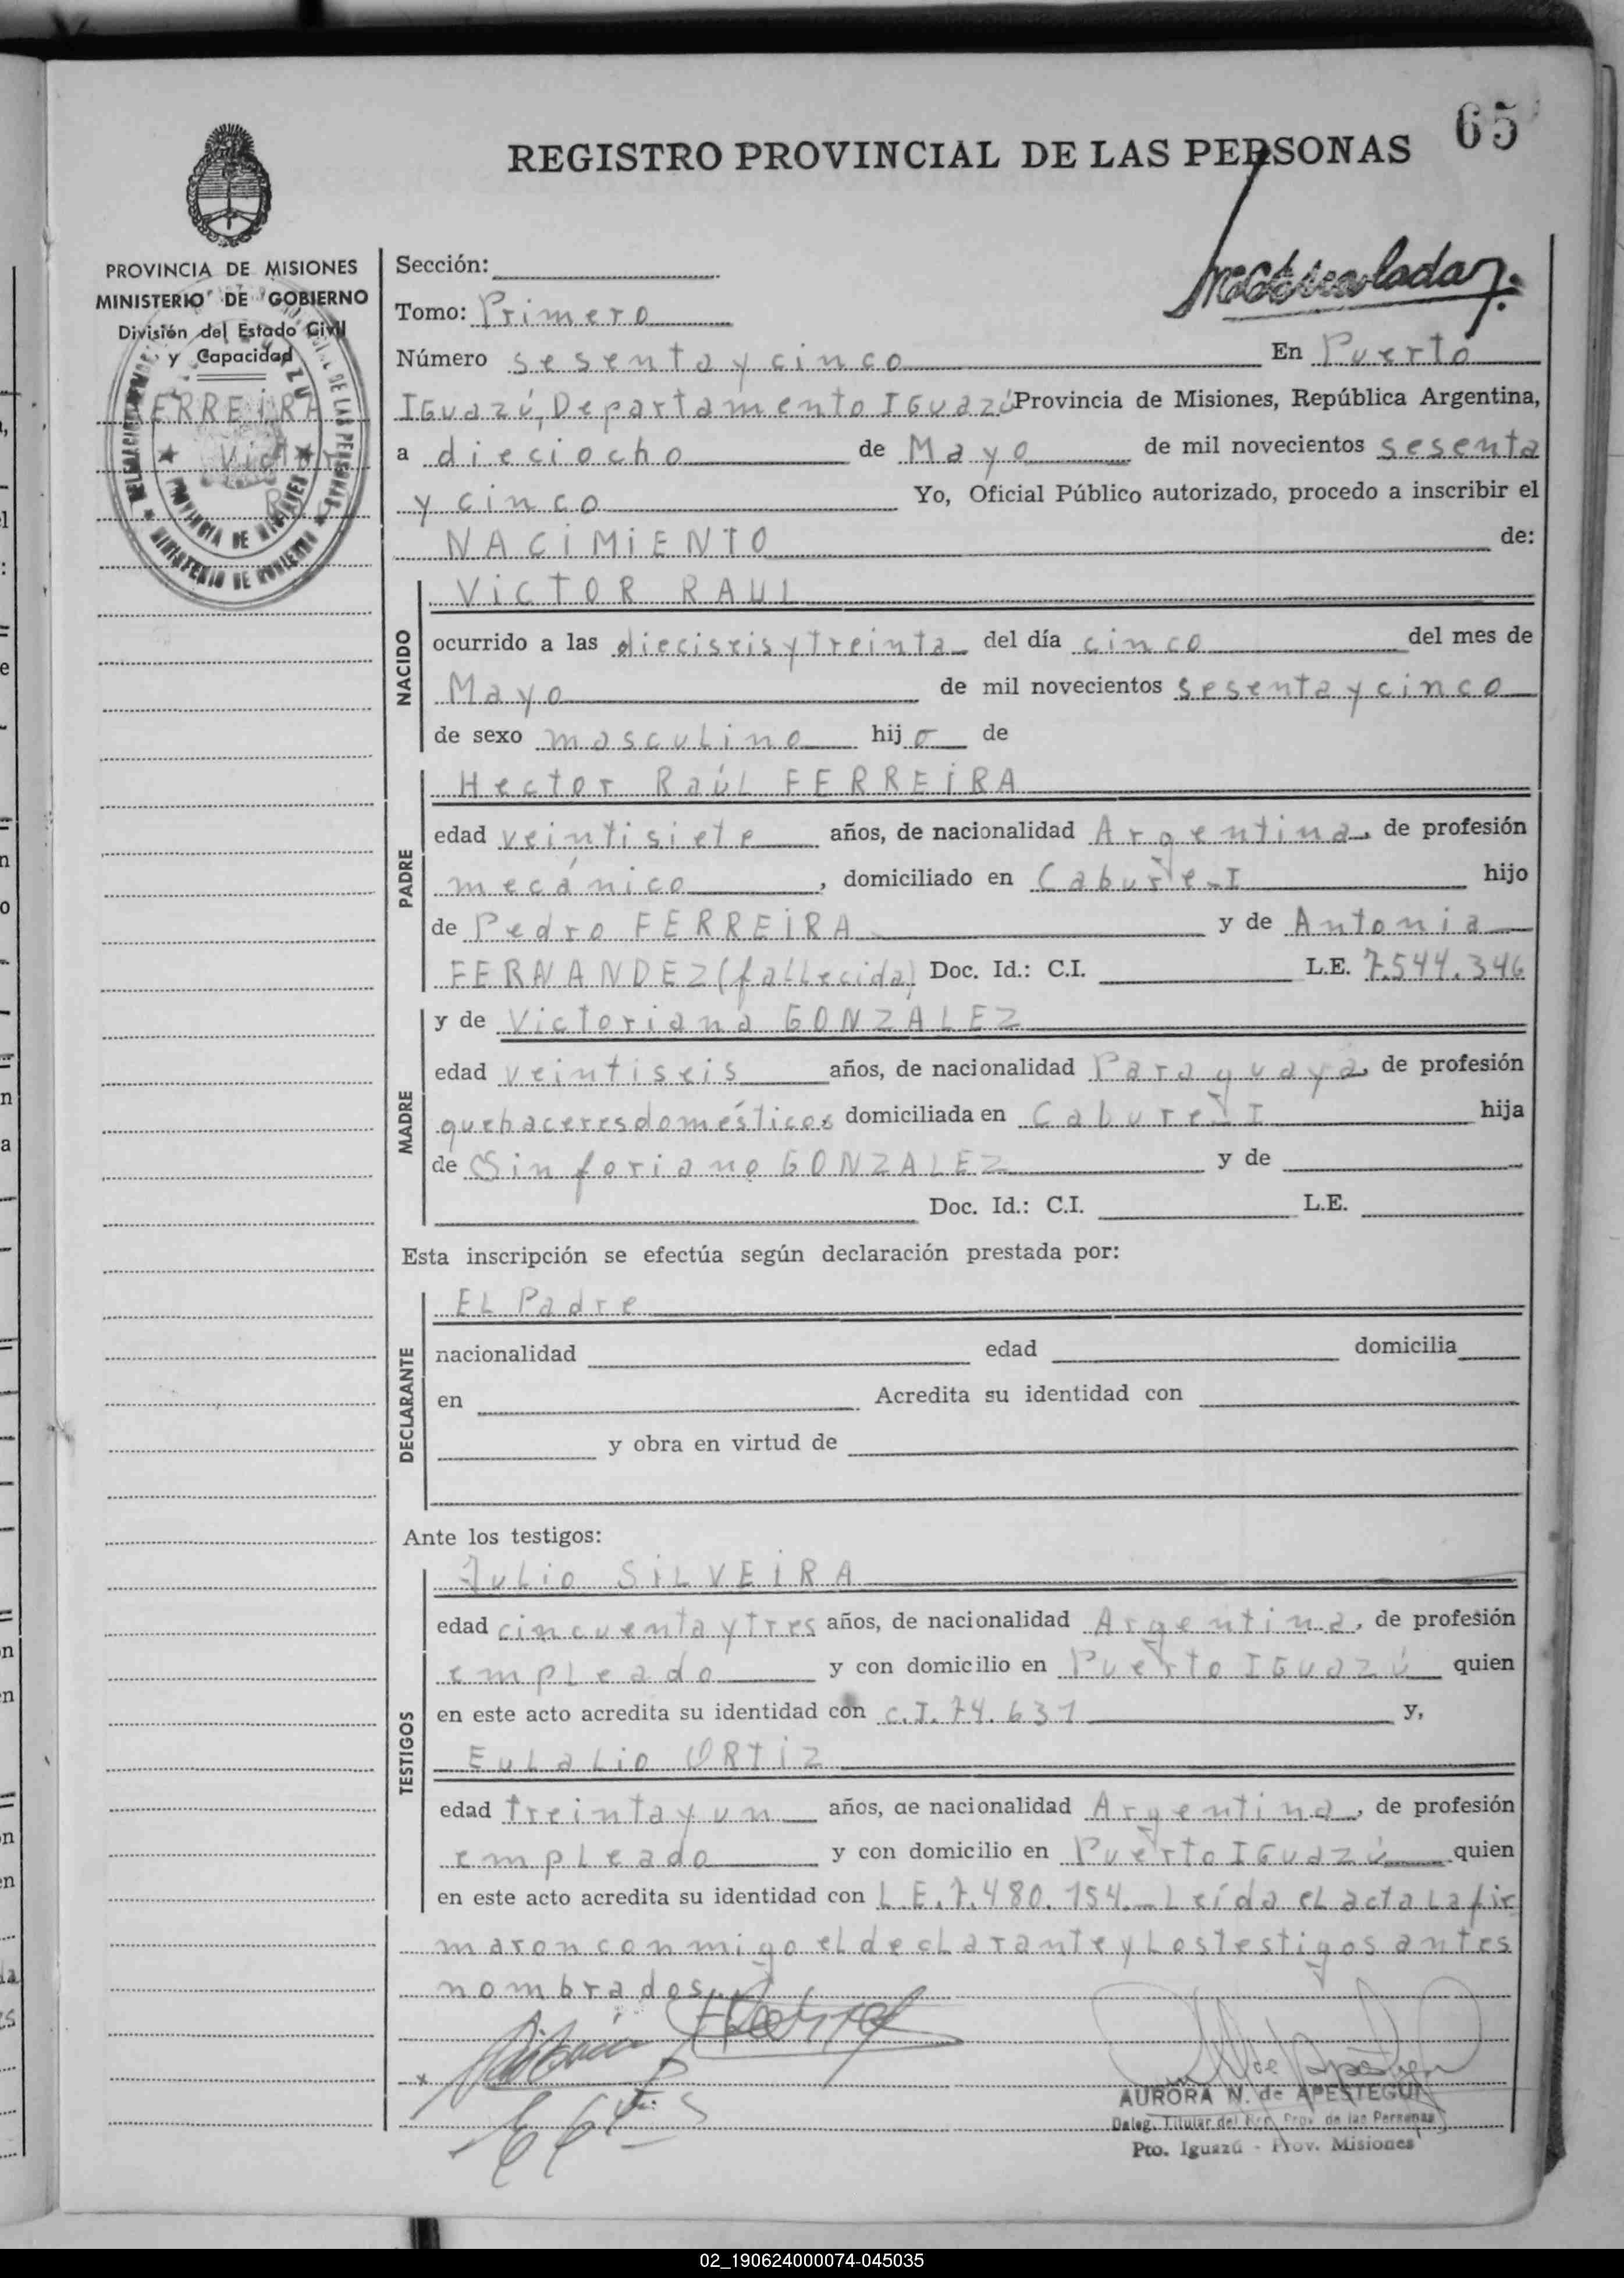 65
REGISTRO PROVINCIAL DE LAS PERSONAS
PROVINCIA DE MISIONES
MINISTERIO DE GOBIERNO
División del Estado Civil
y Capacidad
FERREIRA
Victor
R
PROVINCIA DE MISIONES
MINISTERIO DE GOBIERNO
Sección:
Tomo: Primero
Número sesenta y cinco En Puerto
IGuazú, Departamento IGuazú Provincia de Misiones, República Argentina,
a dieciocho de Mayo de mil novecientos sesenta
y cinco Yo, Oficial Público autorizado, procedo a inscribir el
NACIMIENTO de:
NACIDO
VICTOR RAUL
ocurrido a las dieciseis y treinta del día cinco del mes de
Mayo de mil novecientos sesenta y cinco
de sexo masculino hijo de
PADRE
Hector Raúl FERREIRA
edad veintisiete años, de nacionalidad Argentina, de profesión
mecánico, domiciliado en Cabure-I hijo
de Pedro FERREIRA y de Antonia
FERNANDEZ (fallecida) Doc. Id.: C.I. L.E. 7.544.346
MADRE
y de Victoriana GONZALEZ
edad veintiseis años, de nacionalidad Paraguaya, de profesión
quehaceres domésticos domiciliada en Cabure-I hija
de Sinforiano GONZALEZ y de
Doc. Id.: C.I. L.E.
Esta inscripción se efectúa según declaración prestada por:
DECLARANTE
EL Padre
nacionalidad edad domicilia
en Acredita su identidad con
y obra en virtud de
Ante los testigos:
TESTIGOS
Julio SILVEIRA
edad cincuenta y tres años, de nacionalidad Argentina, de profesión
empleado y con domicilio en Puerto IGuazú quien
en este acto acredita su identidad con C.I. 74.631 y,
Eulalio ORTIZ
edad treinta y un años, de nacionalidad Argentina, de profesión
empleado y con domicilio en Puerto IGuazú quien
en este acto acredita su identidad con L.E. 7.480.154.- Leída el acta la fir
maron conmigo el declarante y los testigos antes
nombrados.
AURORA N. de APESTEGUI
Deleg. Titular del Reg. Prov. de las Personas
Pto. Iguazú - Prov. Misiones
02_190624000074-045035